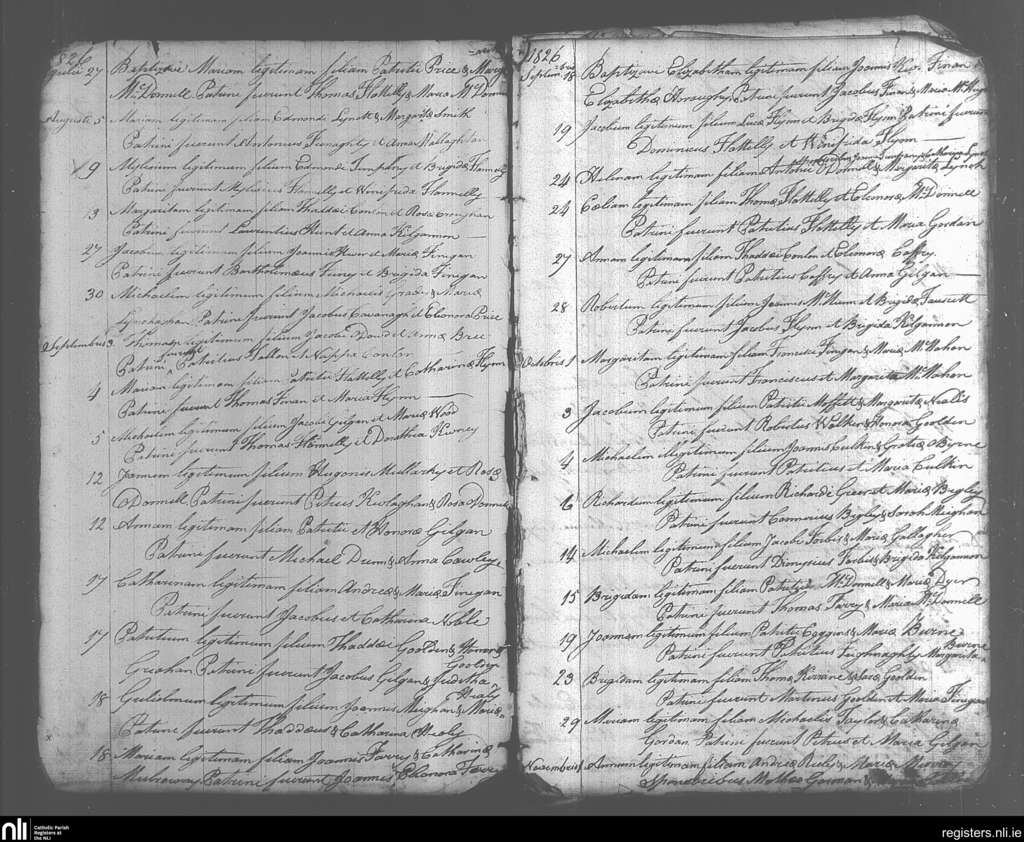 1826
Julii 27 Baptizavi Mariam legitimam filiam Patritii Price & Maria
McDonnell Patrini fuerunt Thomas Flattelly & Maria McDonnell
Augusti 5 Mariam legitimam filiam Edmondi Lynott & Margarita Smith
Patrini fuerunt Antonius Feraghty et Anna
9 legitimum filium Edmondi et Brigida Flannelly
Patrini fuerunt Flannelly et Winefrida Flannelly
13 Margaritam legitimam filiam Thaddai Conlon et Rosa
Patrini fuerunt Laurentius Hunt et Anna Kilgannon
27 Jacobum legitimum filium Joannis et Maria Finigan
Patrini fuerunt Bartholomaeus Feeny et Brigida Finigan
30 Michaelem legitimum filium Michaelis Grady & Maria
Patrini fuerunt Jacobus Cavanagh et Elionora Price
Septembris 3 Thomam legitimum filium Jacobi Dowd et Anna Bree
Patrini fuerunt Patritius Fallon et Conlon
4 Mariam legitimam filiam Patritii Flattelly et Catharina Flynn
Patrini fuerunt Thomas Finan et Maria Flynn
5 Michaelem legitimum filium Jacobi Gilgan et Maria Wood
Patrini fuerunt Thomas Flannelly et Dorothea
12 legitimum filium Hugonis Mullarky et Rosa
O'Donnell Patrini fuerunt Petrus & Rosa O'Donnell
12 Annam legitimam filiam Patritii et Honora Gilgan
Patrini fuerunt Michael Dunn & Anna Cawley
17 Catharinam legitimam filiam Andrea & Maria Finegan
Patrini fuerunt Jacobus et Catharina Noble
17 Patritium legitimum filium Thaddai Goolden & Honora
Patrini fuerunt Jacobus Gilgan & Juditha
Goolden
18 Gulielmum legitimum filium Joannis Meghan & Maria
Healy
Patrini fuerunt Thaddaus & Catharina Healy
18 Mariam legitimam filiam Joannis Farry & Catharina
Patrini fuerunt Joannes & Elianora Farry
1826
Septembris 18 Baptizavi Elizabetham legitimam filiam Joannis Finan
Elizabetha Patrini fuerunt Jacobus Finan & Maria
19 Jacobum legitimum filium Luca Flynn et Brigida Flynn Patrini fuerunt
Dominicus Flattelly et Winifrida Flynn
24 Helenam legitimam filiam Antonii O'Donnell & Margarita Lynott
24 Caeliam legitimam filiam Thoma Flattelly et Elenora McDonnell
Patrini fuerunt Patritius Flattelly et Maria Gordan
27 Annam legitimam filiam Thaddai Conlon et Elenora Caffry
Patrini fuerunt Patritius Caffry et Anna Gilgan
28 Robertum legitimum filium Joannis et Brigida Fausett
Patrini fuerunt Jacobus Flynn et Brigida Kilgannon
Octobris 1 Margaritam legitimam filiam Francisci Finigan & Maria McMahon
Patrini fuerunt Franciscus et Margarita McMahon
3 Jacobum legitimum filium Patritii Moffitt & Margarita
Patrini fuerunt Robertus Walker & Honora Goolden
4 Michaelem legitimum filium Joannis Culkin & Byrne
Patrini fuerunt Patritius et Maria Culkin
6 Richardum legitimum filium Richardi Green et Maria Begley
Patrini fuerunt Cormorius Begley & Sarah Meighan
14 Michaelem legitimum filium Jacobi Forbis & Maria Gallagher
Patrini fuerunt Dionysius Forbis & Brigida Kilgannon
15 Brigidam legitimam filiam Patritii McDonnell & Maria Dyer
Patrini fuerunt Thomas Farry & Maria McDonnell
19 Joannem legitimum filium Patritii Coggins & Maria Burne
Patrini fuerunt Patritius & Margarita Burne
23 Brigidam legitimam filiam Thoma Kirrane & Sara Goolden
Patrini fuerunt Martinus Goolden et Maria Finigan
29 Mariam legitimam filiam Michaelis Taylor & Catharina
Gordan Patrini fuerunt Petrus et Maria Gilgan
Novembris 1 Annam legitimam filiam Andrea & Maria Murray
Sponsoribus Matheo Gorman &
nli Catholic Parish
Registers at
the NLI
registers.nli.ie